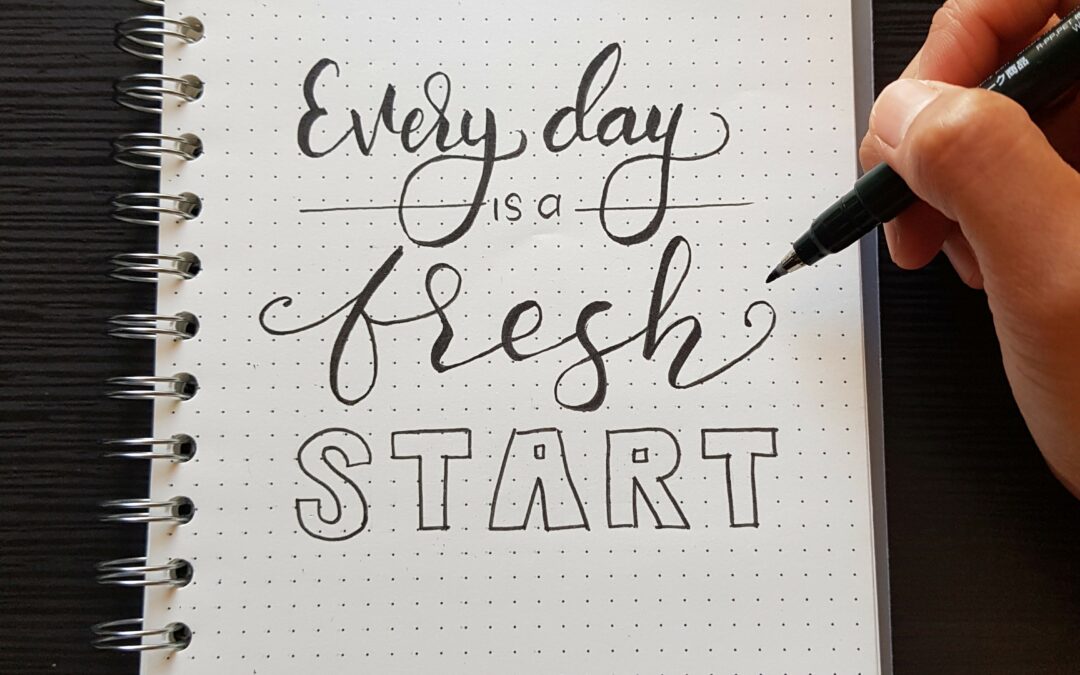 Every day
is a
fresh
START
商品